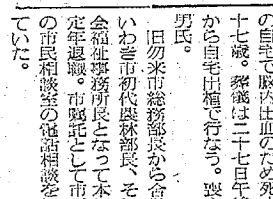 の自宅で脳内出血のため死
十七歳。葬儀は二十七日午後
から自宅出棺で行なう。喪
男氏。
旧勿来市総務部長から合
いわき市初代農林部長、そ
会福祉事務所長となって本
定年退職。市嘱託として市
の市民相談室の電話相談を
ていた。